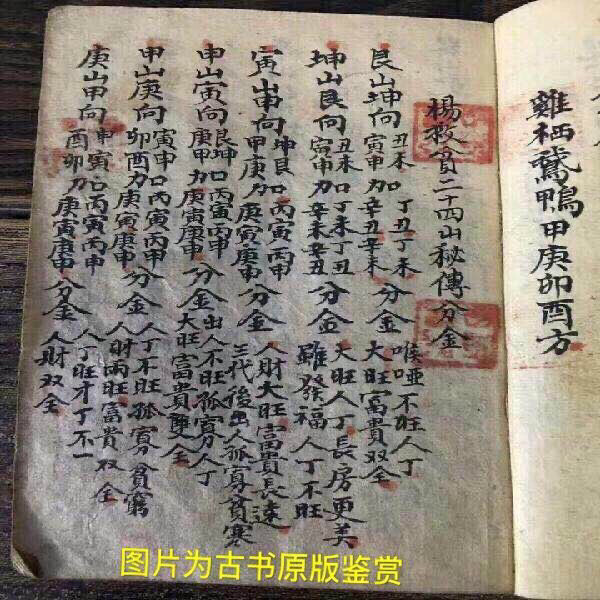 雞栖鵞鴨甲庚卯酉方
楊救貧二十四山秘傳分金
艮山坤向
丑未加丁丑丁未
寅申加辛丑辛未
分金
喉哑不旺人丁
大旺富貴双全
坤山艮向
丑未加丁未丁丑
寅申加辛未辛丑
分金
大旺人丁長房更美
雖發福人丁不旺
寅山申向
坤艮加丙寅丙申
甲庚加庚寅庚申
分金
人財大旺富貴長遠
三代後出人孤寡貧寒
申山寅向
艮坤加丙寅丙申
庚甲加庚寅庚申
分金
出人不旺孤寡人丁
大旺富貴雙全
甲山庚向
寅申加丙寅丙申
卯酉加庚寅庚申
分金
人丁不旺孤寡貧窮
人財两旺富貴双全
庚山甲向
申寅加丙寅丙申
酉卯加庚寅庚申
分金
人丁旺才丁不一
人財双全
图片为古书原版鉴赏